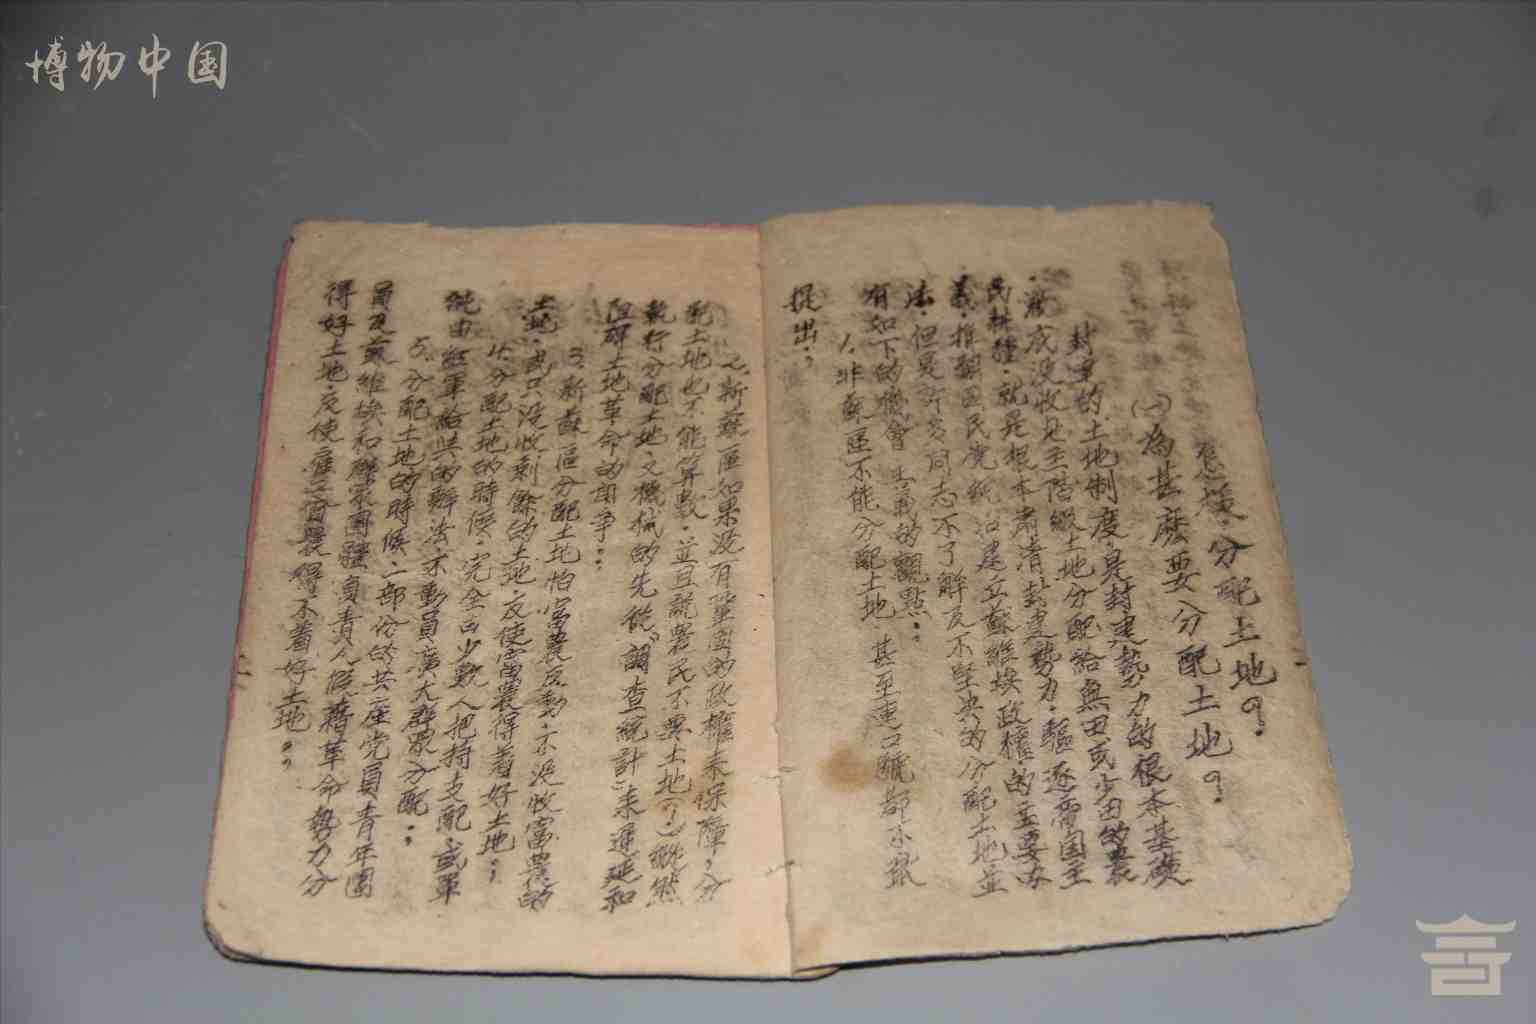 博物中国
怎樣分配土地?
(一)為甚麽要分配土地?
封建的土地制度,是封建势力的根本基礎
,澈底没收地主階級土地分配給無田或少田的農
民耕種,就是根本肃清封建势力,驅逐帝国主
義,推翻国民党統治建立蘇維埃政權的主要办
法,但是許多同志不了解及不坚决的分配土地並
有如下的機會主義的觀點:
1.非蘇區不能分配土地 甚至連口號都不敢
提出;
2.新蘇區如果没有鞏固的政權來保障,分
配土地也不能算数,並且説農民不要土地(?)縱然
執行分配土地,又機械的先從“調查統計”來遲延和
阻碍土地革命的闘争;
3.新蘇區分配土地怕富農反動,不没收富農的
土地,或只没收剩餘的土地,反使富農得着好土地;
4.分配土地的時候,完全由少数人把持支配,或單
純由紅軍給與的辦法不動員廣大群眾分配;
5.分配土地的時候,一部份的共產党員青年團
員及蘇維埃和群眾團體負責人假藉革命勢力分
得好土地,反使雇工貧農得不着好土地;